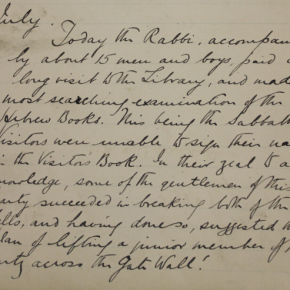 July.
Today the Rabbi, accompan
by about 15 men and boys, paid a
long visit to the Library, and mad
most searching examination of the
Hebrew Books. This being the Sabbat
Visitors were unable to sign their na
in the Visitors Book. In their zeal to a
knowledge, some of the gentlemen of this
arty succeeded in breaking both of the
lls, and having done so, suggested
lan of lifting a junior member of
arty across the Gate Wall!